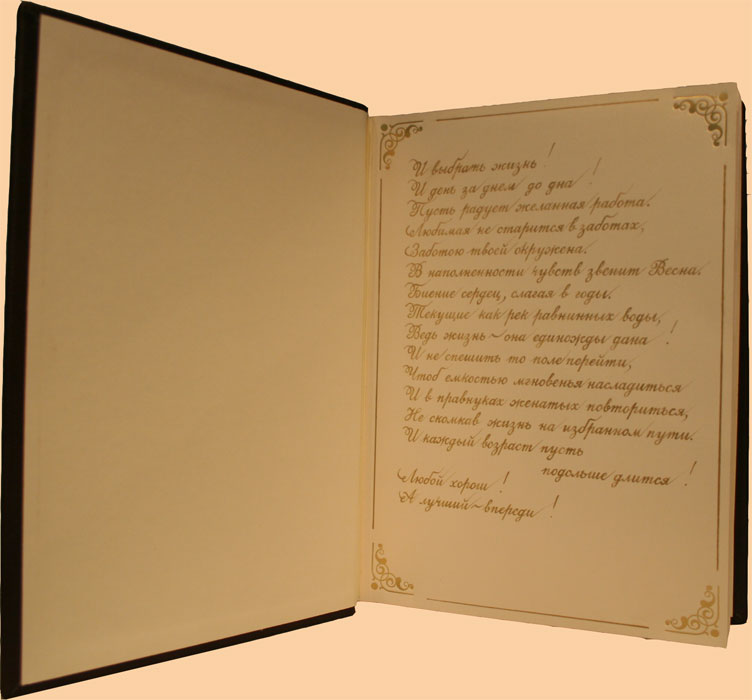 И выбрать жизнь!
И день за днем до дна!
Пусть радует желанная работа.
Любимая не старится в заботах,
Заботою твоей окружена.
В наполненности чувств звенит Весна.
Биение сердец, слагая в годы.
Текущие как рек равнинных воды,
Ведь жизнь ~ она единожды дана!
И не спешить то поле перейти,
Чтоб емкостью мгновенья насладиться
И в правнуках женатых повториться,
Не скомкав жизнь на избранном пути.
И каждый возраст пусть
подольше длится!
Любой хорош!
А лучший ~ впереди!